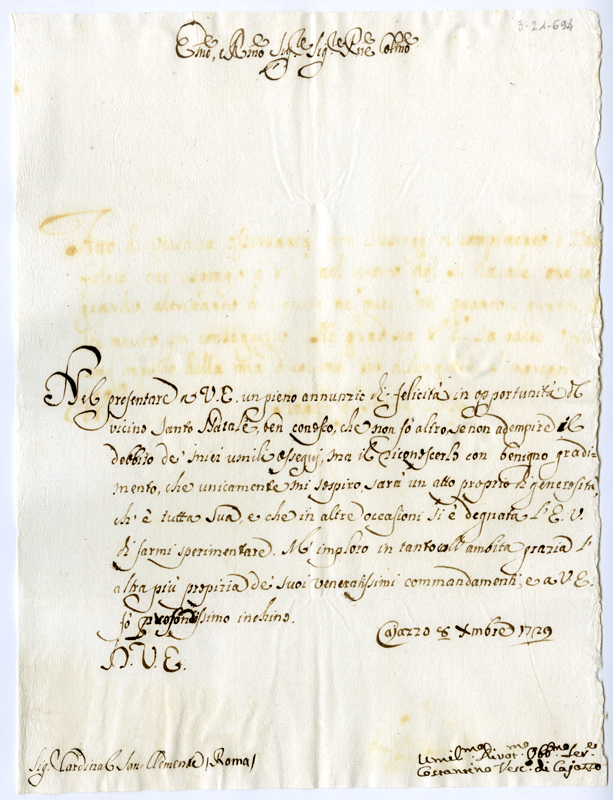 3-21-694
Emo, e Rmo Sig.re Sig.re Pne Colmo
Nel presentare a V.E. un pieno annunzio di felicità in opportunità del
vicino Santo Natale, ben conosco, che non fò altro se non adempire il
debbito de' miei umili ossequi, ma il riconoscerlo con benigno gradi-
mento, che unicamente mi sospiro, sarà un atto proprio di generosità,
ch'è tutta Sua, e che in altre occasioni si è degnata l'E.V.
di farmi sperimentare. M'imploro in tanto coll'ambita grazia l'
altra più propizia de' Suoi veneratissimi commandamenti, e a V.E.
fò profondissimo inchino.
Cajazzo 8 Xmbre 1729
D.V.E.
Sig. Cardinal San Clemente (Roma)
Umil.mo Divot.mo Obb.mo Ser.e
Costantino Vesc.o di Cajazzo